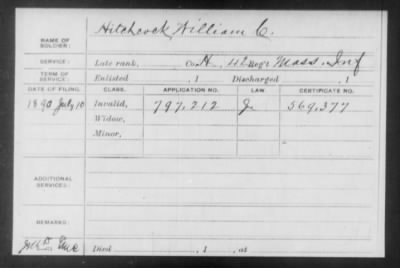 Hitchcock, William C.
NAME OF
SOLDIER:
SERVICE: Late rank, Co. H, 42 Reg't Mass. Inf
TERM OF
SERVICE: Enlisted , 1 Discharged , 1
DATE OF FILING. CLASS. APPLICATION NO. LAW. CERTIFICATE NO.
1890 July 10 Invalid, 797,212 J 569,377
Widow,
Minor,
ADDITIONAL
SERVICES:
REMARKS:
Died , 1 , at